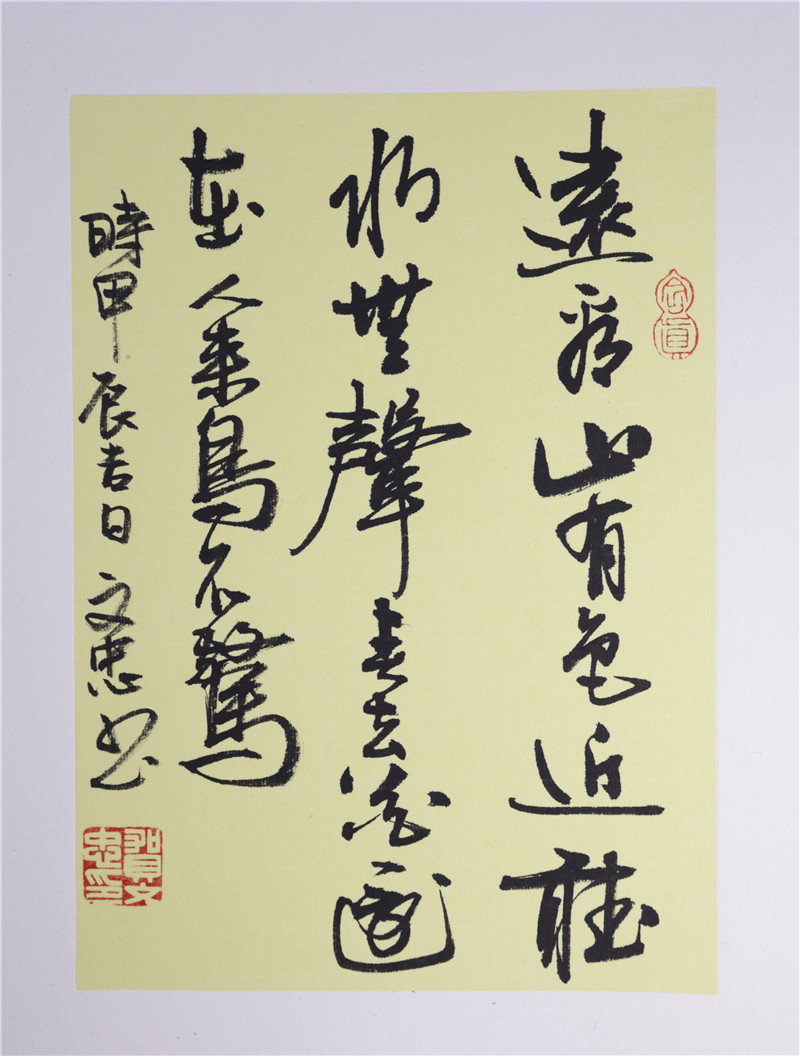 遠看山有色近聽
水無聲春去花還
在人来鳥不驚
時甲辰吉日 文忠书
賀文忠印